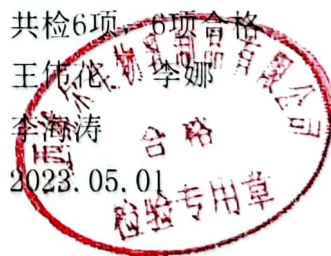 共检6项，6项合格
王伟花 李娜
李海涛
2023.05.01
有限公司
合格
检验专用章